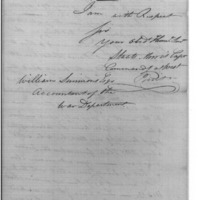 I am with Respect
Sir
Your obdt Humb
Capt
Command
William Simmons Esqr
Accountant of the
War Department